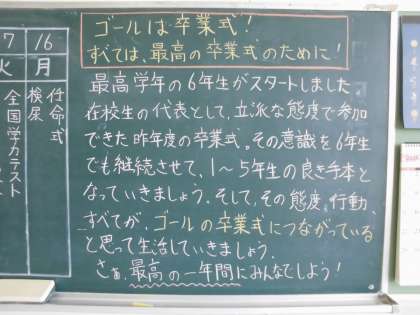 ゴールは卒業式！
すべては、最高の卒業式のために！
最高学年の6年生がスタートしました
在校生の代表として、立派な態度で参加
できた昨年度の卒業式。その意識を6年生
でも継続させて、1〜5年生の良き手本と
なっていきましょう。そして、その態度、行動、
すべてが、ゴールの卒業式につながっている
と思って生活していきましょう。
さぁ、最高の一年間にみんなでしよう！
16
月
任命式
検尿
17
火
全国学力テスト